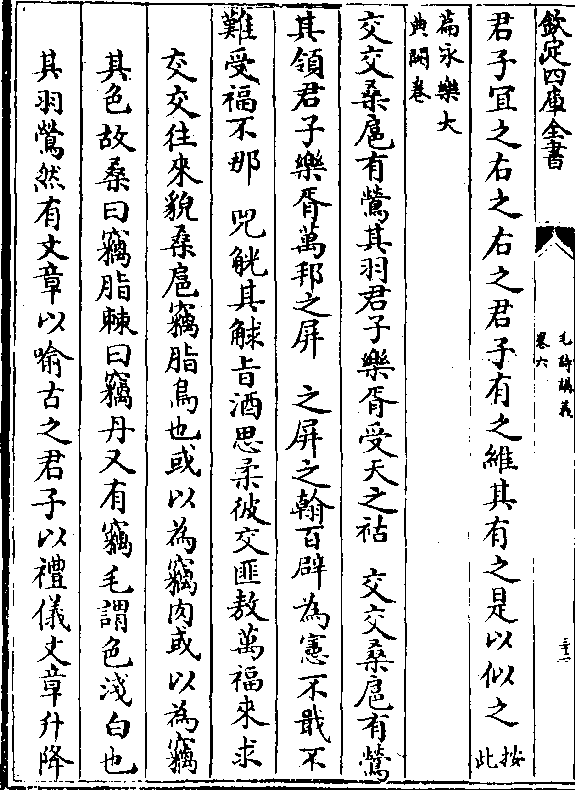 欽定四庫全書
毛詩講義
卷六
三十二
君子宜之右之右之君子有之維其有之是以似之按此
篇永樂大
典闕卷
交交桑扈有鶯其羽君子樂胥受天之祜　交交桑扈有鶯
其領君子樂胥萬邦之屏　之屏之翰百辟為憲不戢不
難受福不那　兕觥其觩旨酒思柔彼交匪敖萬福來求
交交往來貌桑扈竊脂鳥也或以為竊肉或以為竊
其色故桑曰竊脂棘曰竊丹又有竊毛謂色淺白也
其羽鶯然有文章以喻古之君子以禮儀文章升降